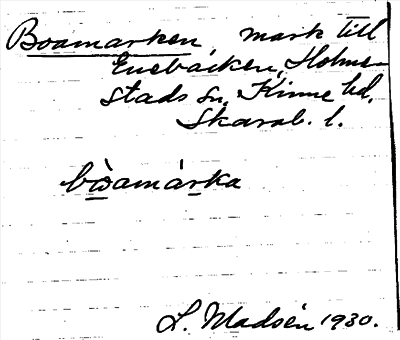 Boamarken, mark till
Enebacken, Holme-
stads sn. Kinne hd.
Skarab. l.
bωamarka
L. Madsén 1930.